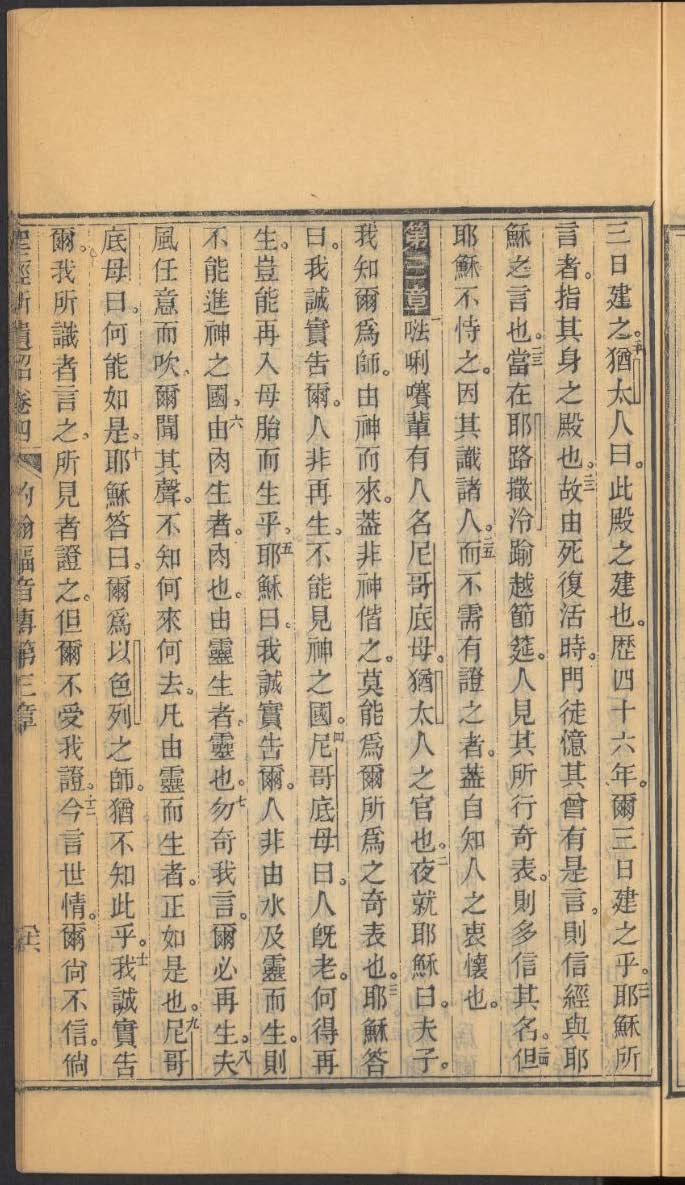 三日建之。二十猶太人曰。此殿之建也。歷四十六年。爾三日建之乎。二一耶穌所
言者。指其身之殿也。二二故由死復活時。門徒憶其曾有是言。則信經與耶
穌之言也。二三當在耶路撒冷踰越節筵。人見其所行奇表。則多信其名。二四但
耶穌不恃之。因其識諸人。二五而不需有證之者。蓋自知人之衷懷也。
第三章一𠵽唎㘔輩有人名尼哥底母。猶太人之官也。二夜就耶穌曰。夫子。
我知爾為師。由神而來。蓋非神偕之。莫能為爾所為之奇表也。三耶穌答
曰。我誠實告爾。人非再生。不能見神之國。四尼哥底母曰。人既老。何得再
生。豈能再入母胎而生乎。五耶穌曰。我誠實告爾。人非由水及靈而生。則
不能進神之國。六由肉生者。肉也。由靈生者。靈也。七勿奇我言。爾必再生。八夫
風任意而吹。爾聞其聲。不知何來何去。凡由靈而生者。正如是也。九尼哥
底母曰。何能如是。十耶穌答曰。爾為以色列之師。猶不知此乎。十一我誠實告
爾。我所識者言之。所見者證之。但爾不受我證。十二今言世情。爾尚不信。倘
聖經新遺詔卷四 約翰福音傳第三章 六